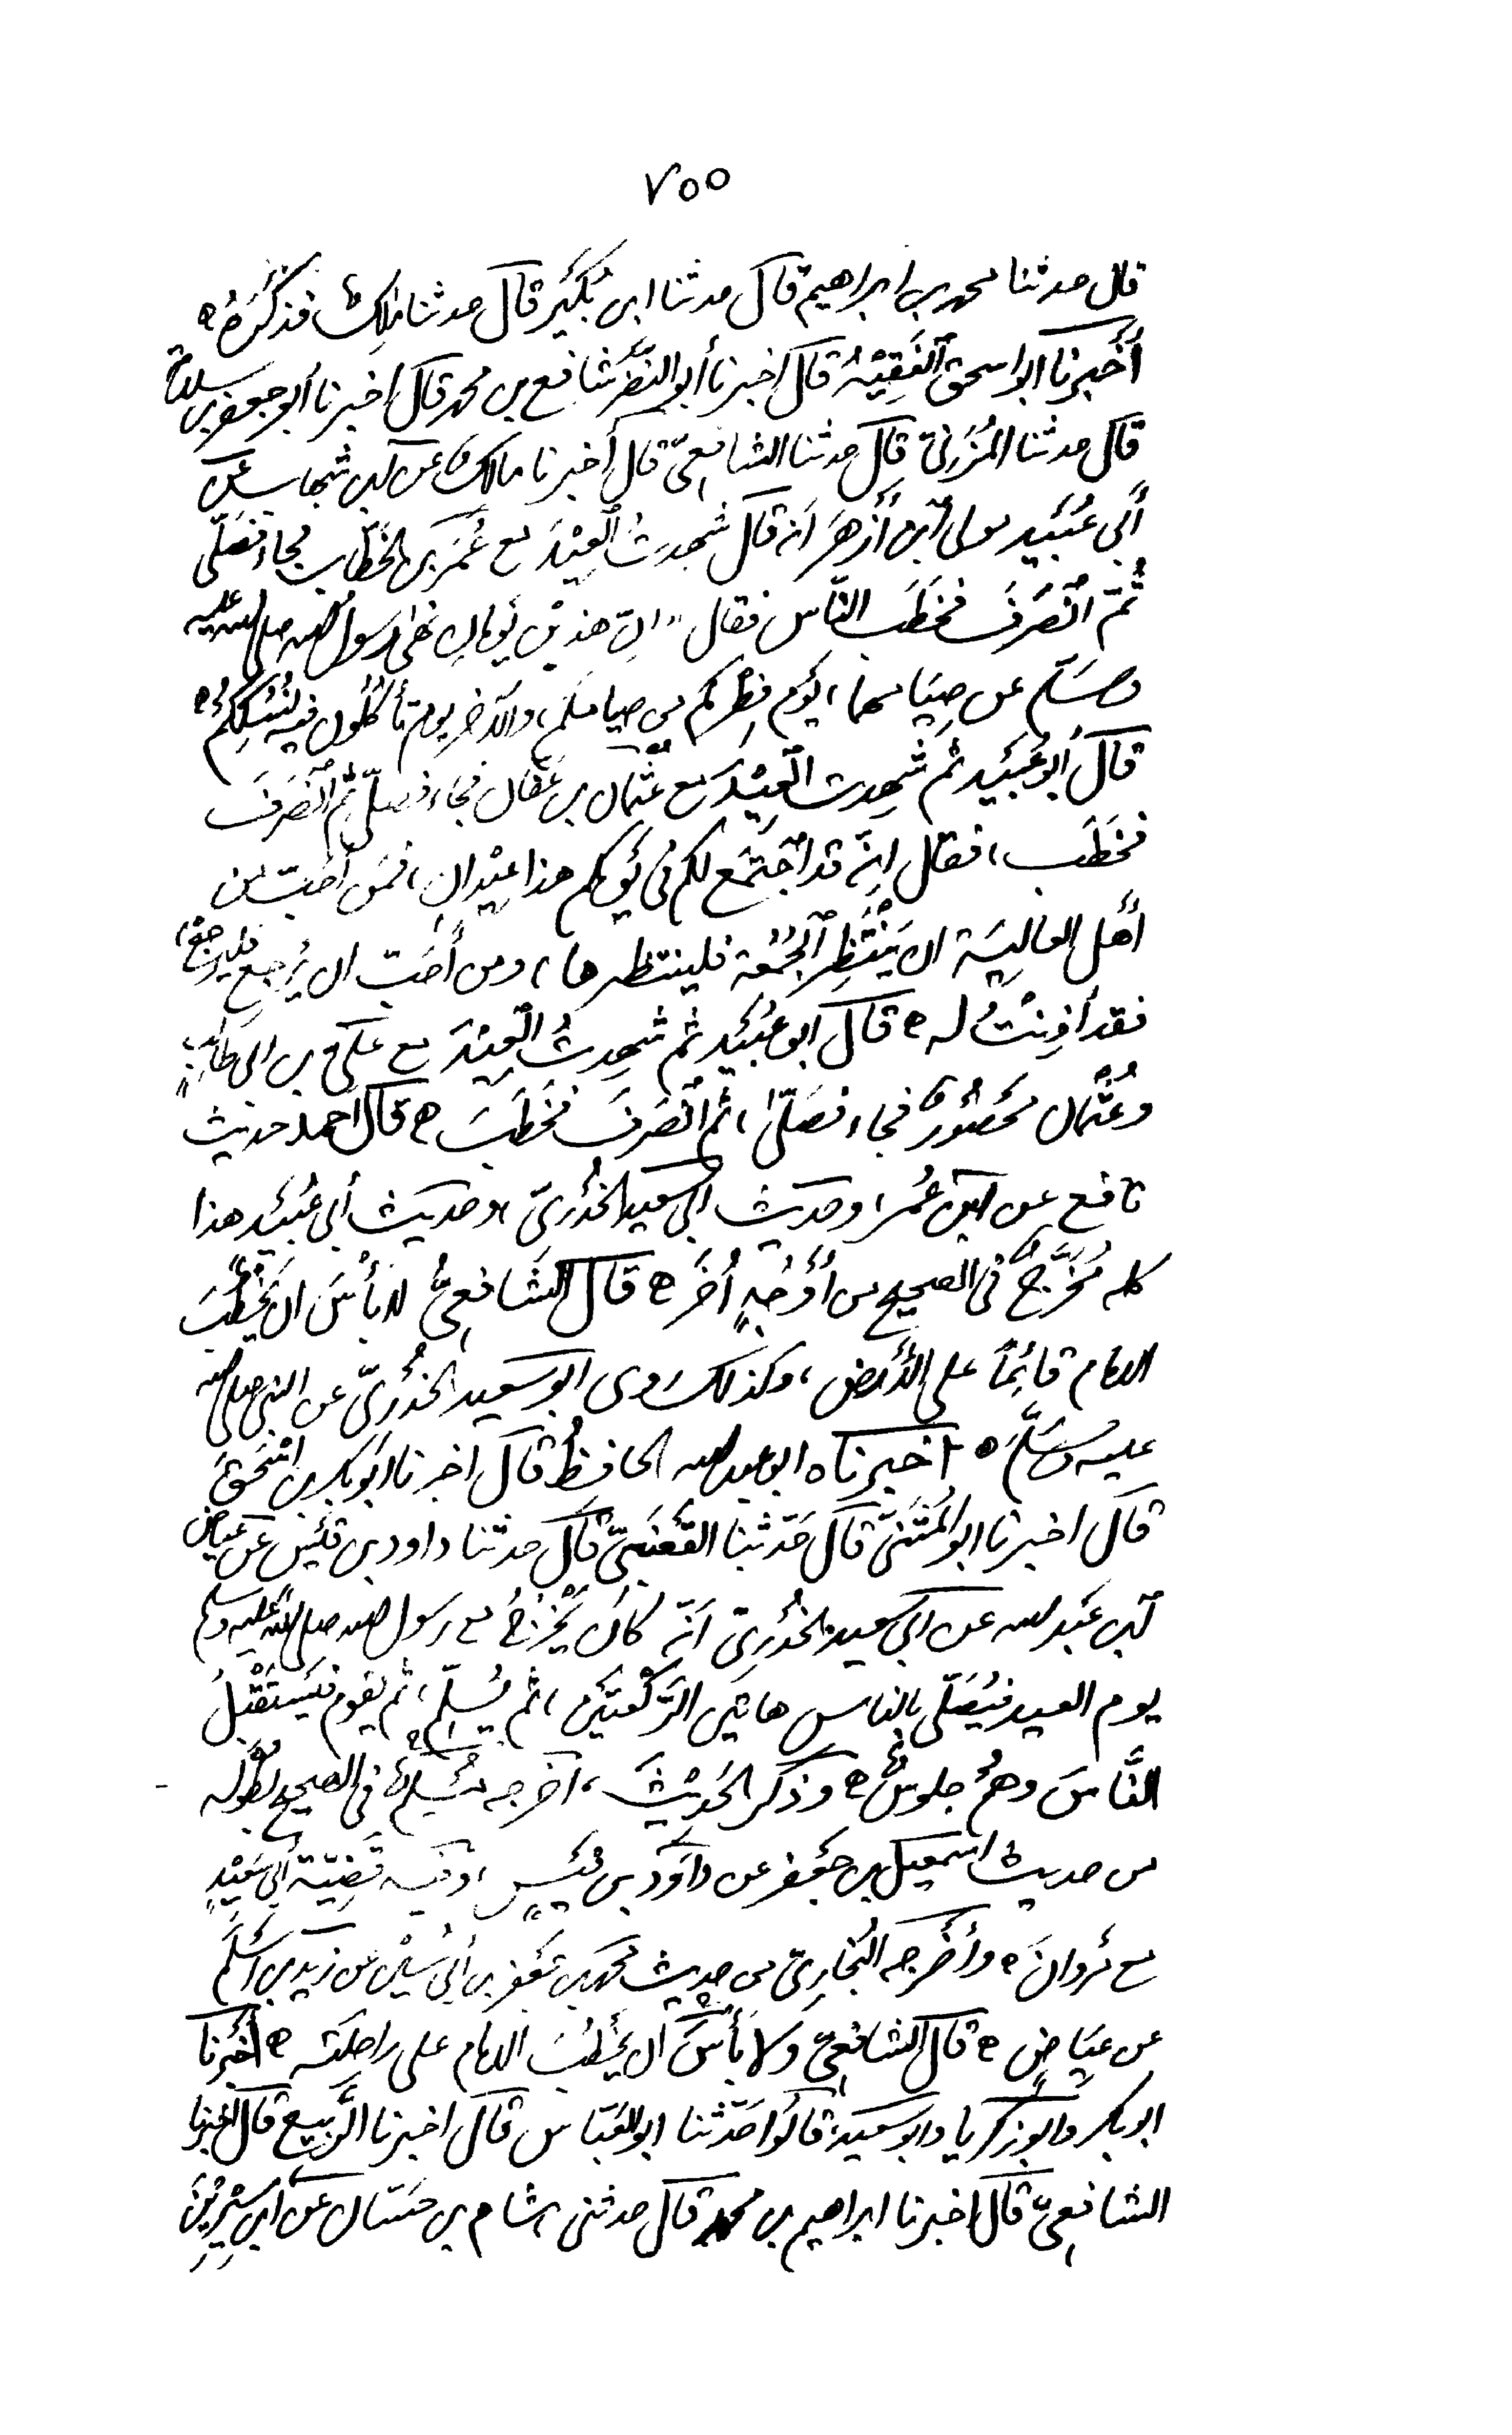 ٧٥٥
قال حدثنا محمد بن ابراهيم قال حدثنا ابن بُكَيْر قال حدثنا مَالِكٌ فذكَرَهُ ه
أَخْبَرنا ابو اسحق الْفَقِيْهُ قال اخبرنا أبو النَّضْر شافع بن محمد قال اخبرنا أبو جعفر بن سلامة
قال حدثنا المُزَنِيّ قال حدثنا الشافِعِيّ قال أخبرنا مالكٌ عن ابن شهاب عن
أَبي عُبَيْد مولى ابْن أَزْهَرَ انه قال شَهِدتُ الْعِيْدَ مع عُمَرَ بن الخَطَّاب فجاء فصَلّى
ثُمّ انْصَرَفَ فخَطَبَ النَّاس فقال " انّ هذين يَومان نهى رسول الله صلى الله عليه
وسَلّم عن صِيَامهما، يَوم فِطْرِكم من صيامكم، والآخر يوم تأكُلُون فيه نُسُكِكُمْ ه
قال أبو عُبَيْد ثم شَهِدت الْعِيْدَ مع عُثْمان بن عَفّان فجاء فصلّى ثُمّ انْصَرَفَ
فخَطَب، فقال انّه قد اجْتَمَع لكم في يَومكم هذا عِيْدان، فمَن أحَبّ من
أهْل العالِيَة ان يَنْتَظِر الْجُمُعة فلينتظرها، ومن أحَبّ ان يَرْجِع فليرجعْ،
فقد أذِنْتُ له ه قال ابو عُبَيْد ثم شَهِدتُ الْعِيْدَ مع عَلِيّ بن ابي طالبٍ
وعُثْمان مَحْصُوْرٌ فجاء فصَلّى، ثم انْصَرَفَ فخَطَبَ ه قال احمد حديث
نافع عن ابن عُمَر، وحديث ابي سعيد الخُدْريّ، وحديث أبي عُبَيْد هذا
كله مُخَرَّجٌ في الصحيح من أوْجُهٍ أُخَرَ ه قال الشَافِعِيُّ لا بأْسَ ان يَخْطُبَ
الامام قائِمًا على الأرْض، وكذلك روى ابو سعيد الخُدْريّ عن النبي صلى الله
عليه وسَلّمَ ه اخبرناه ابو عبد الله الحافظُ قال اخبرنا ابو بكر بن اسْحق
قال اخبرنا ابو المُثَنّى قال حَدّثنا القَعْنَبِيّ قال حدثنا داود بن قَيْس عن عياض
ابن عَبْد الله عن ابي سعيد الخُدْرِيّ انّه كان يَخْرُجُ مع رسول الله صلى الله عليه وسلم
يوم العيد فيُصَلّى بالناس هاتين الرَّكْعتَيْن، ثم يُسَلِّم، ثم يقوم فيَسْتَقْبِلُ
النَّاسَ وهُم جلوسٌ ه وذكر الحَدِيْثَ، أخرجه مُسْلِمٌ في الصحيح بطُوْله
من حديث اسمعيل بن جَعْفر عن داوُد بن قَيْسٍ، وفيه قَضِيّة أبي سَعِيْدٍ
مع مَرْوانَ ه وأخْرجه البُخارِيّ من حديث محمد بن جَعْفر بن أبي كثير عن زيد بن أسْلَم
عن عِيَاضٍ ه قال الشافِعِيّ وَلا بَأْسَ ان يَخْطُبَ الامام على راحلته ه أخْبَرنا
ابو بكر وابو زكريا وابو سعيد، قالُوا حَدّثنا ابو العَبّاس قال اخبرنا الرَّبِيع قال اخبرنا
الشافِعِيُّ قال اخبرنا ابراهيم بن محمد قال حدثنى هشام بن حَسّان عن ابن سِيْرِيْنَ